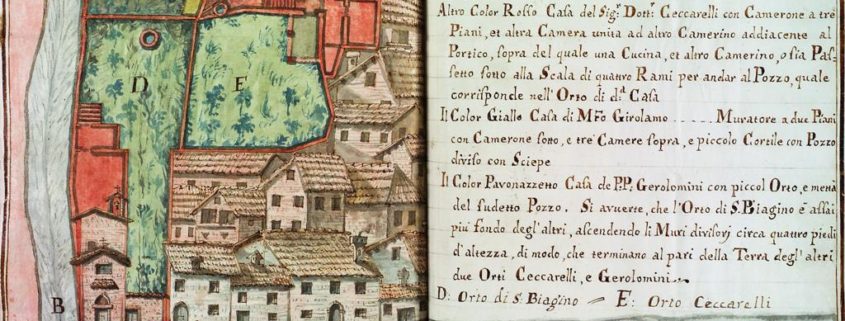 D
E
B
Altro Color Rosso Casa del Sig.r Dott.r Ceccarelli con Camerone a trè
Piani, et altra Camera unita ad altro Camerino addiacente al
Portico, sopra del quale una Cucina, et altro Camerino, o sia Pas=
setto sotto alla Scala di quattro Rami per andar al Pozzo, quale
corrisponde nell'Orto di d.a Casa
Il Color Giallo Casa di M.ro Girolamo ..... Muratore a due Piani
con Camerone sotto, e trè Camere sopra, e piccolo Cortile con Pozzo
diviso con Sciepe
Il Color Pavonazzetto Casa de P.P. Gerolomini con piccol Orto, e metà
del sudetto Pozzo. Si avverte, che l'Orto di S. Biagino è assai
più fondo degl'altri, ascendendo li Muri divisorj circa quattro piedi
d'altezza, di modo, che terminano al pari della Terra degl'altri
due Orti Ceccarelli, e Gerolomini
D: Orto di S. Biagino = E: Orto Ceccarelli